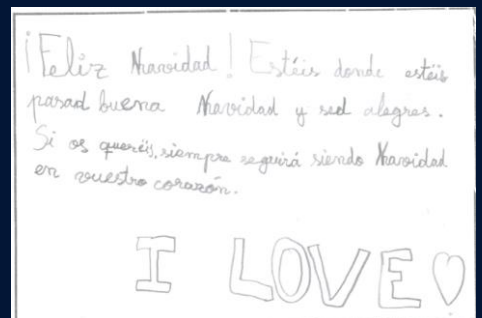 ¡Feliz Navidad! Estéis donde estéis
pasad buena Navidad y sed alegres.
Si os queréis, siempre seguirá siendo Navidad
en vuestro corazón.
I LOVE ♡